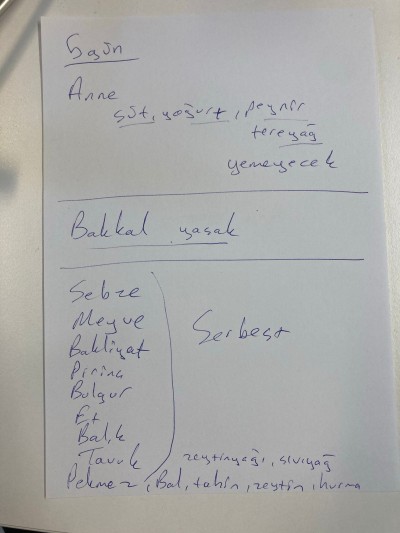 5 gün
Anne
süt, yoğurt, peynir
tereyağ
yemeyecek
Bakkal yasak
Sebze
Meyve
Bakliyat
Pirinç
Bulgur
Et
Balık
Tavuk
Serbest
zeytinyağı, sıvıyağ
Pekmez, Bal, tahin, zeytin, hurma